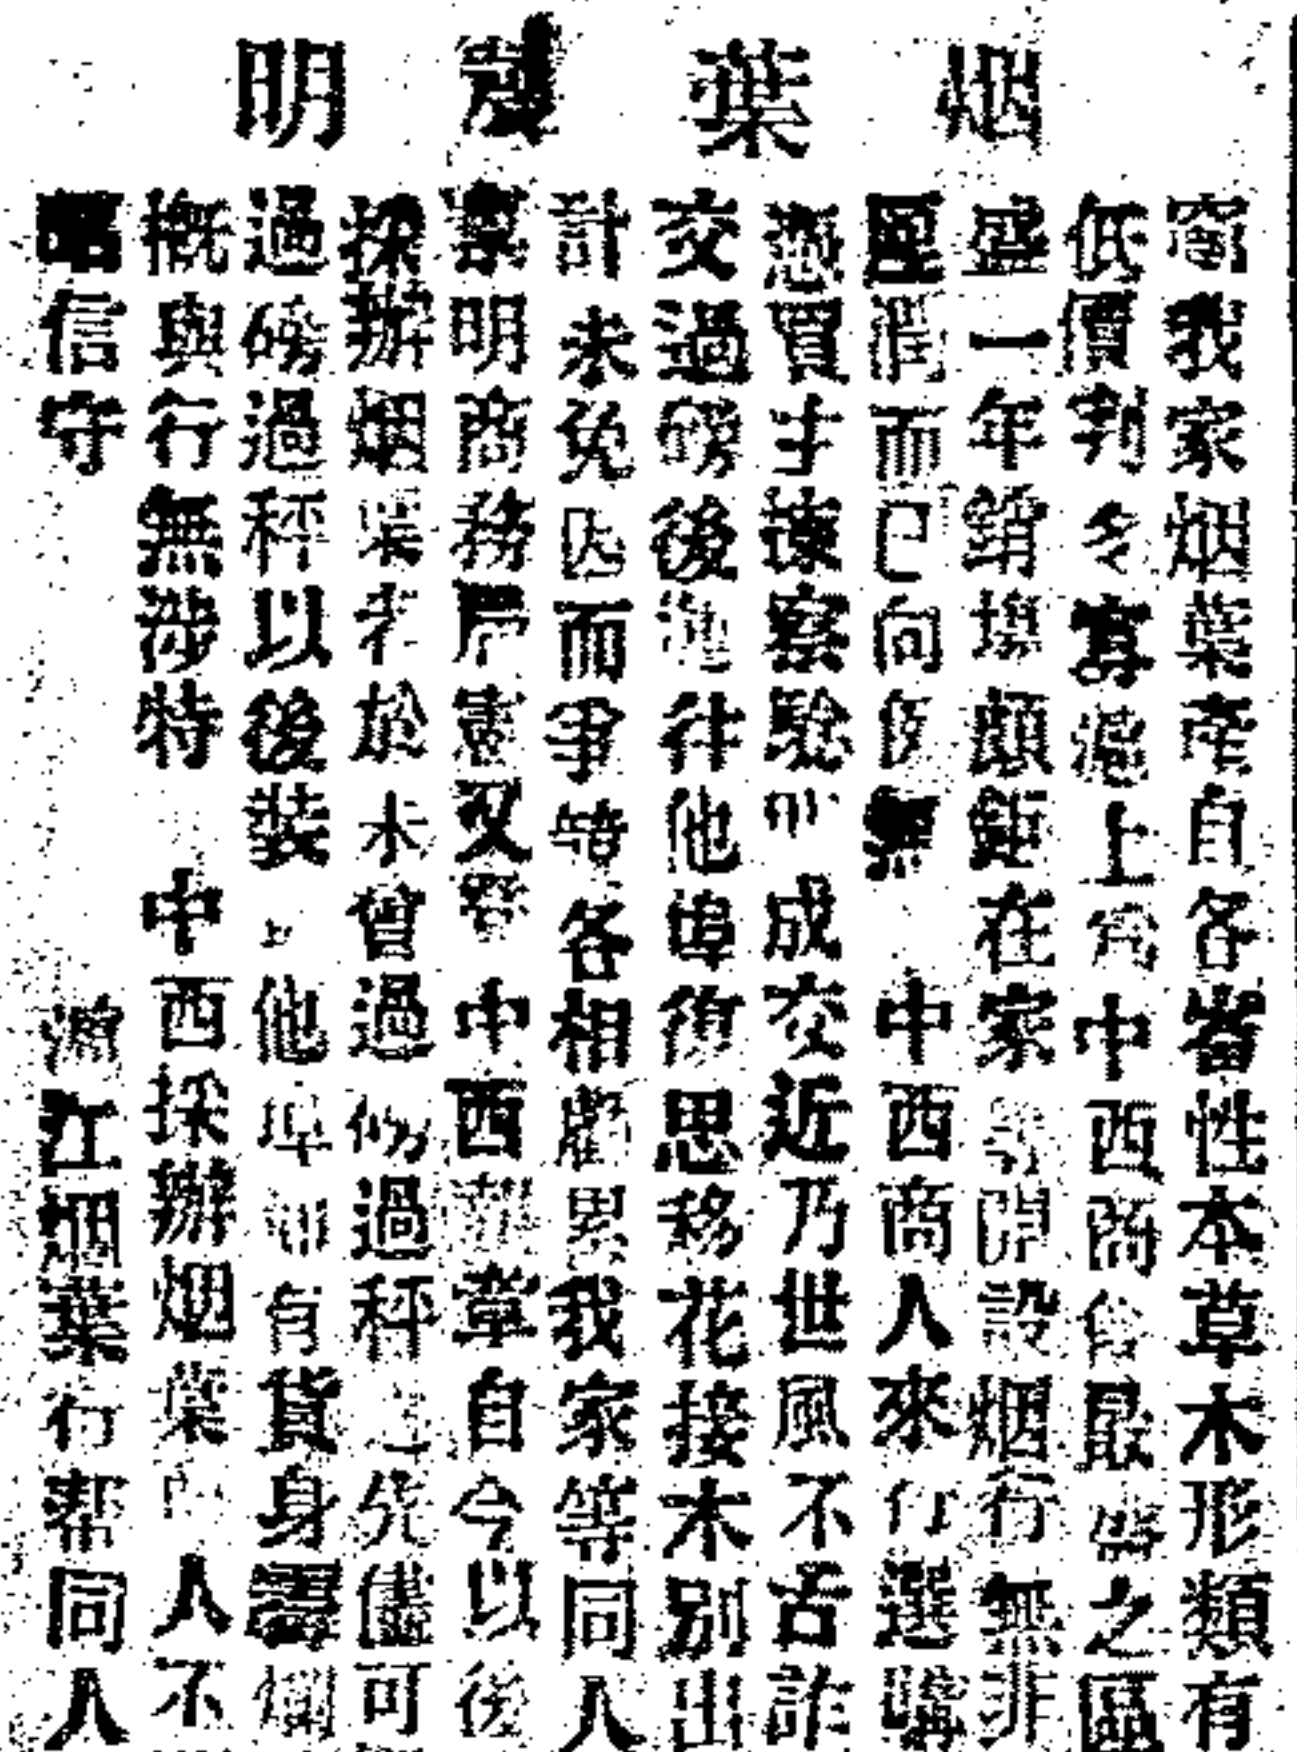 烟葉聲明
竊我家烟葉產自各畨性本草木形類有
低價判今寡滬上為中西商會最盛之區
盛一年銷塲頗鉅在家等開設烟行無非
居間而已向例無中西商人來行選購
憑買主揀察騐成交近乃世風不古詐
交過磅後迤往他埠復思移花接木別出
計未免因而爭端各相虧累我家等同人
稟明商務憲又登中西報章自今以後
採辦烟葉者於未曾過磅過秤之先儘可
過磅過秤以後裝上他埠如有貨身霉爛
概與行無涉特中西採辦烟葉人不
信守滬江烟葉行幇同人